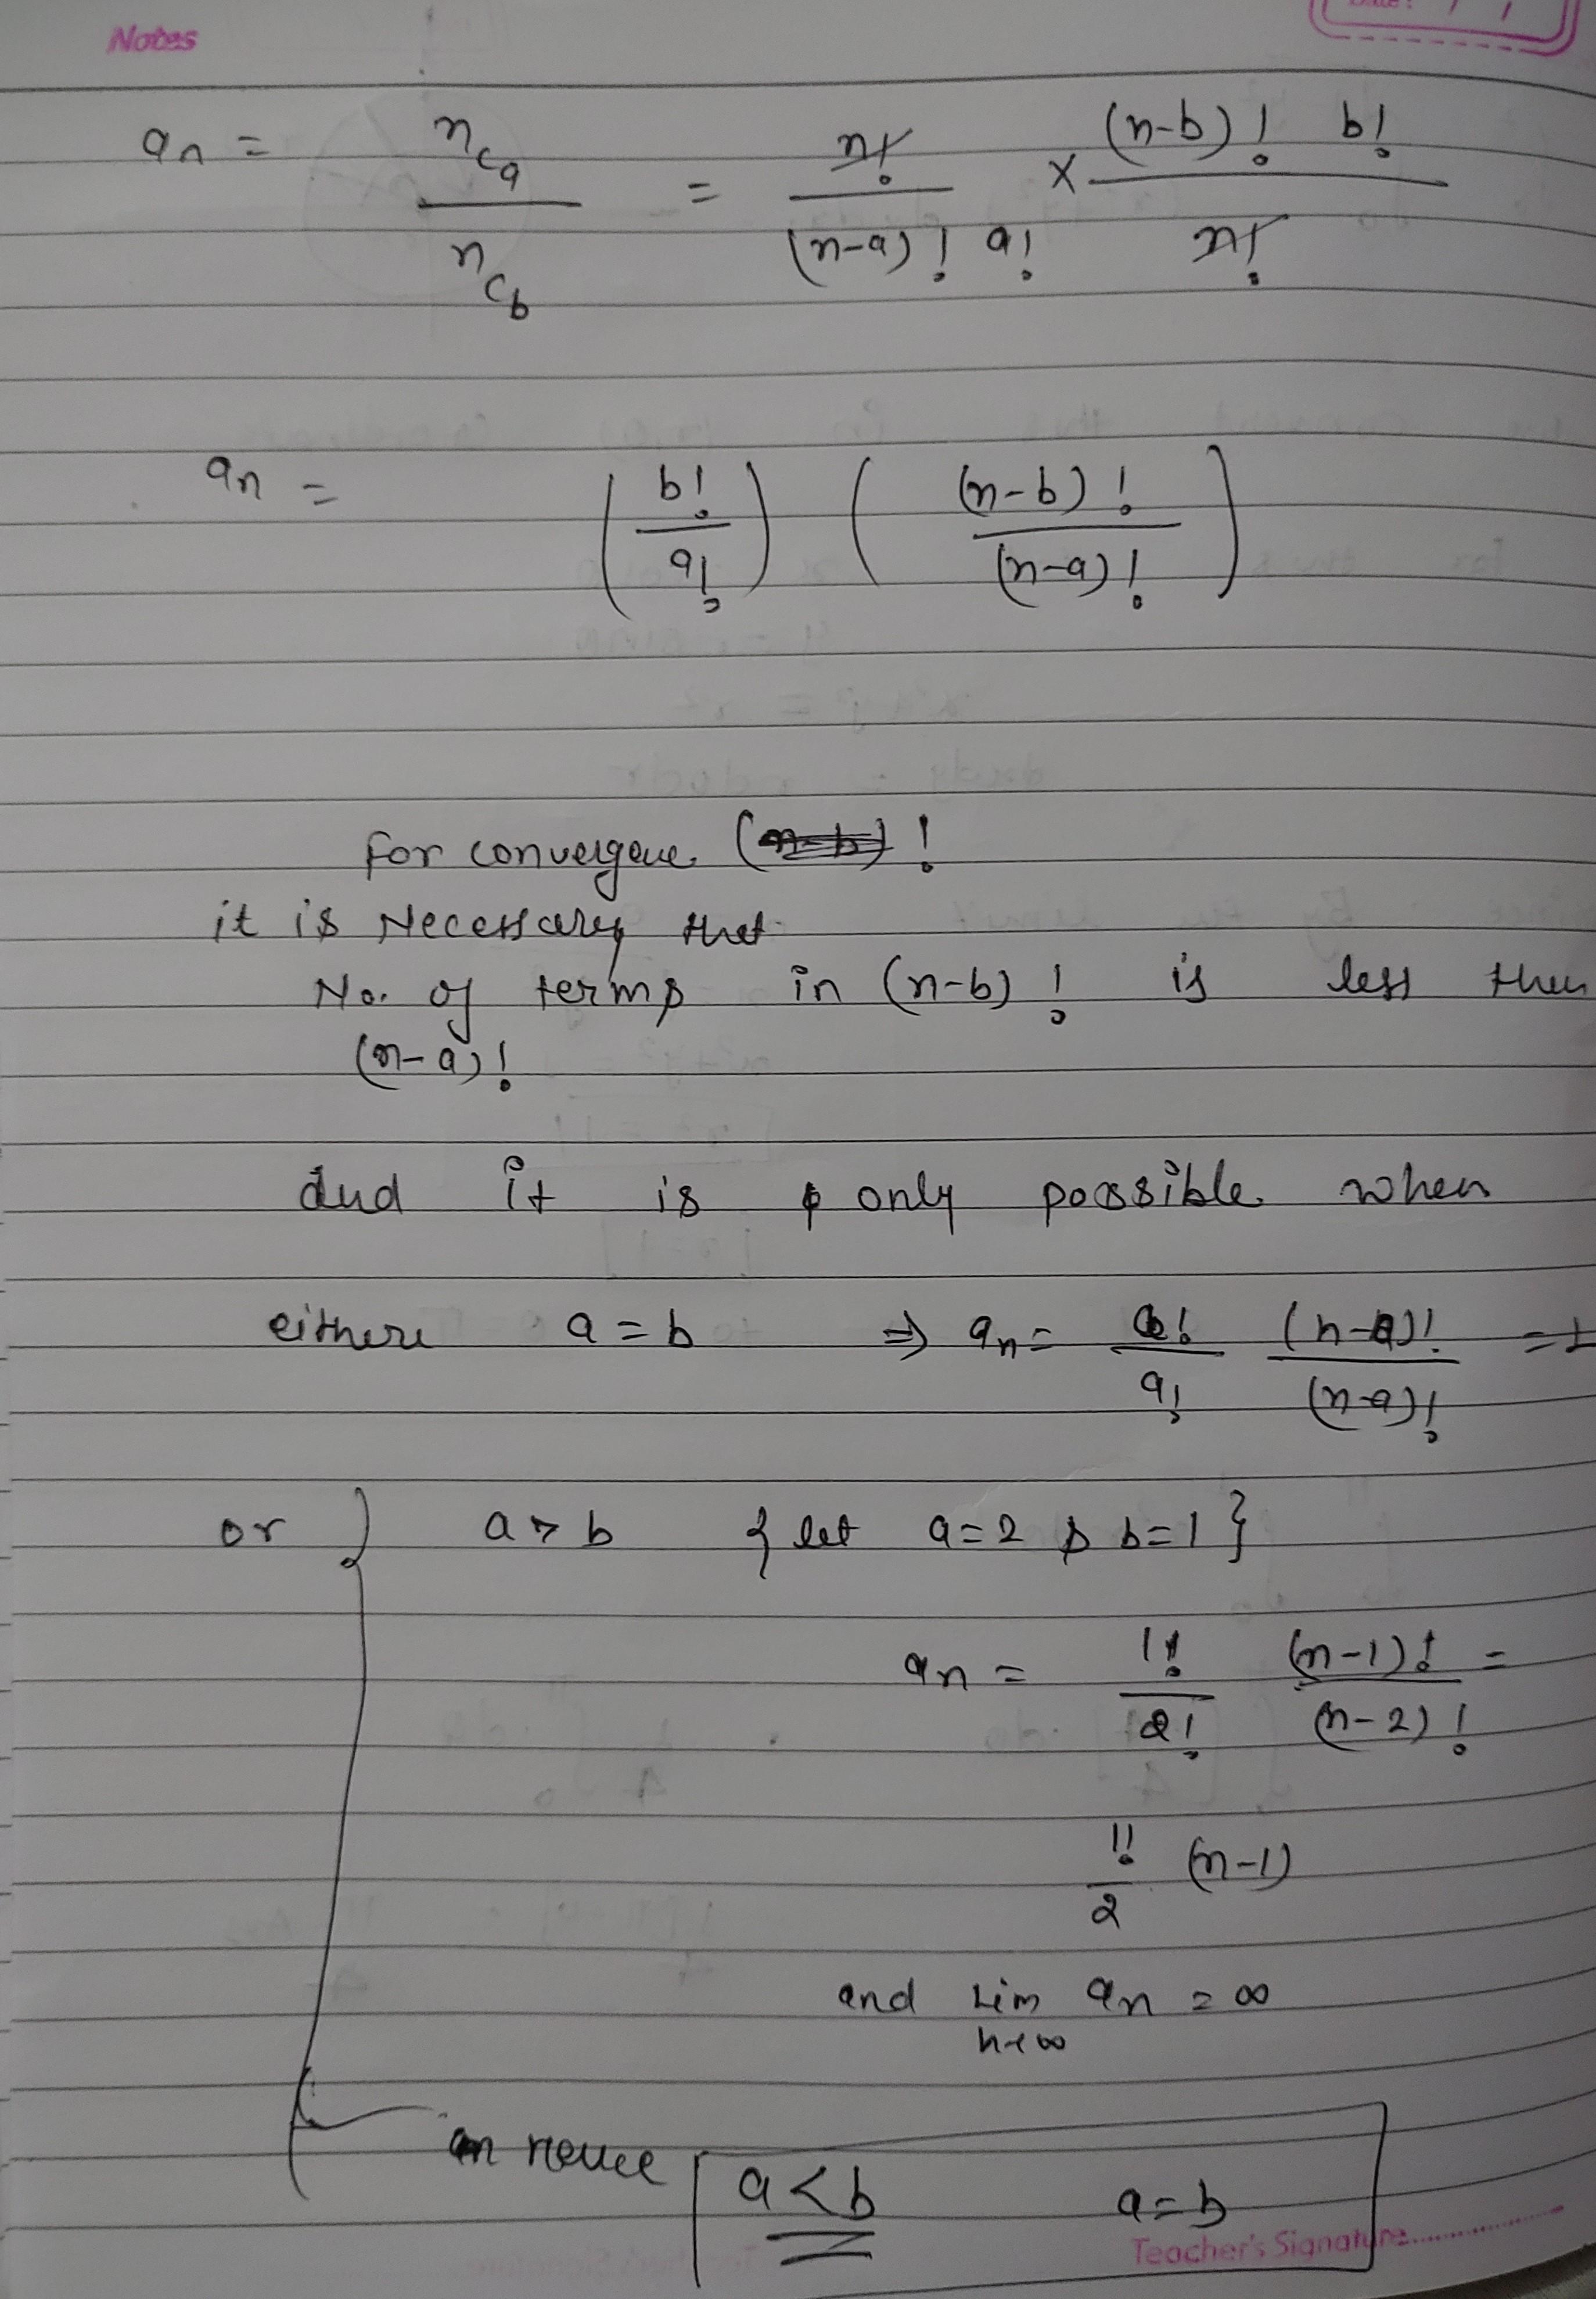 Notes
Date : / /
an = nCa / nCb = n! / (n-a)! a! × (n-b)! b! / n!
an = (b! / a!) ((n-b)! / (n-a)!)
for convergence (n-b)!
it is Necessary that
No. of terms in (n-b)! is less then
(n-a)!
And it is only possible when
either a = b ⇒ an = a! / a! (n-a)! / (n-a)! = 1
or } a > b { let a=2 & b=1 }
an = 1! / 2! (n-1)! / (n-2)! =
1! / 2 (n-1)
and Lim n→∞ an = ∞
hence a < b a = b
Teacher's Signature